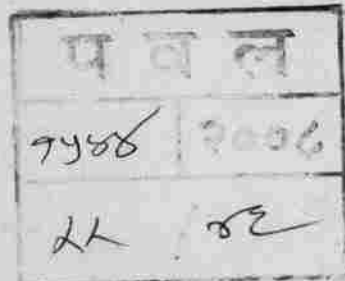 प व ल
१५४४ २००८
४६